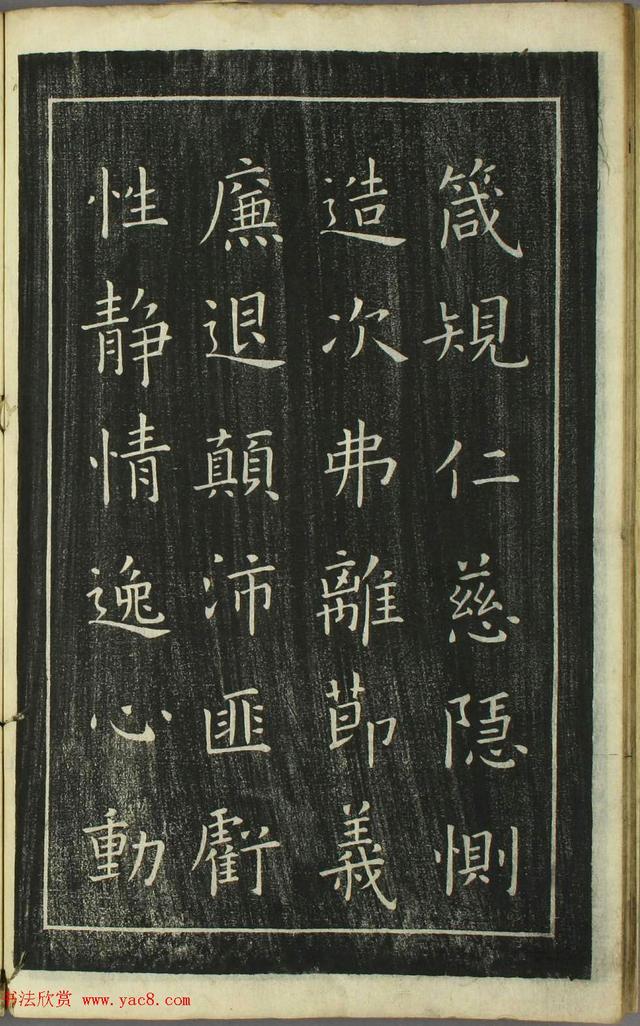 箴規仁慈隱惻
造次弗離節義
廉退顛沛匪虧
性靜情逸心動
书法欣赏 www.yac8.com